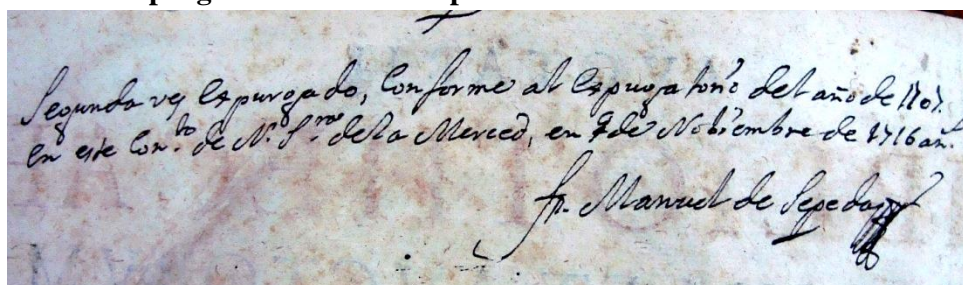 Segunda vez expurgado, Conforme al Expurgatorio del año de 1707.
en este Con.to de N. S.ra de la Merced, en 9 de Nobiembre de 1716 añ.s
fr. Manuel de Sepeda